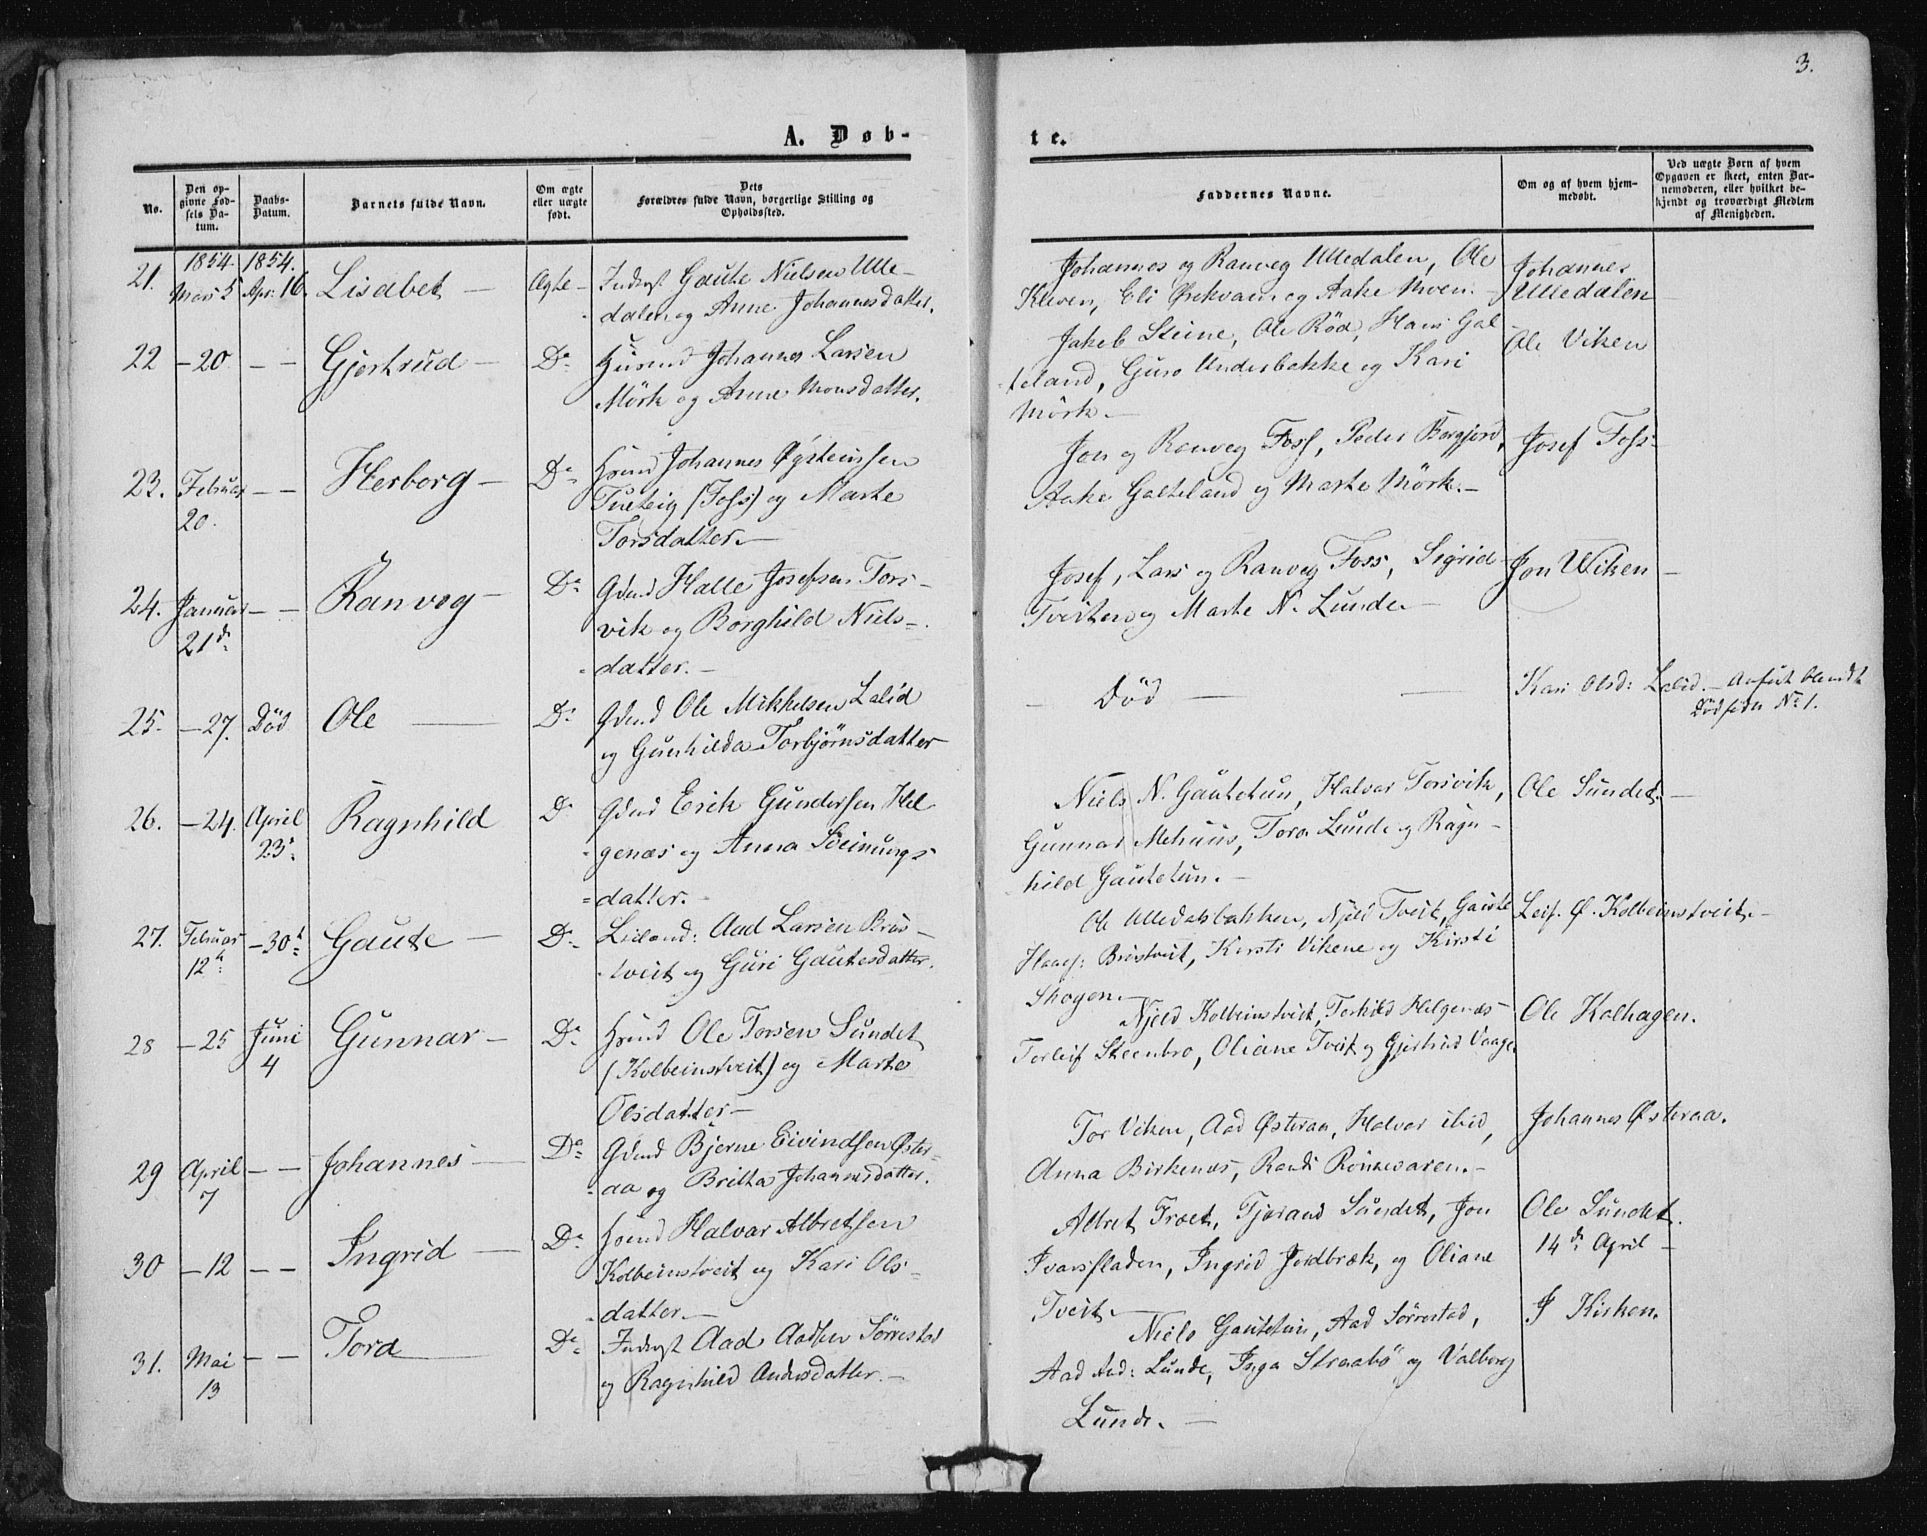 3.
A. Døb-
te.
No.
Den op-
givne Fød-
sels Da-
tum.
Daabs-
Datum.
Barnets fulde Navn.
Om ægte
eller uægte
født.
Dets
Forældres fulde Navn, borgerlige Stilling og
Opholdssted.
Faddernes Navne.
Om og af hvem hjem-
medøbt.
Ved uægte Børn af hvem
Opgaven er skeet, enten Bar-
nemoderen, eller hvilket be-
kjendt og troværdigt Medlem
af Menigheden.
21.
1854
Mars 5
1854.
Apr. 16
Lisabet —
Ægte —
Inderst Gaute Nielsen Ulle-
dalen og Anne Johannesdatter.
Johannes og Ranveg Ulledalen, Ole
Kleven, Eli Ørekvam og Aake Moen.
Johannes
Ulledalen
22
— 20
— —
Gjertrud —
Do
Huusmd Johannes Larsen
Mörk og Anne Monsdatter.
Jakob Steine, Ole Rød, Hans Gal
teland, Guro Underbakke og Kari
Mörk. —
Ole Viken
23.
Februar
20.
— —
Herborg —
Do
Hmd Johannes Øysteinssen
Tuteig (Foss) og Marte
Torsdatter. —
Jon og Ranveg Foss, Peder Bergjord,
Aake Galteland og Marte Mörk. —
Josef Foss
24.
Januar
21de
— —
Ranveg —
Do
Gdmd Halle Josefsen Tors-
vik og Borghild Niels-
datter. —
Josef, Lars og Ranveg Foss, Sigrid
Tveiten og Marte N. Lunde —
Jon Wiken —
25.
— 27.
Död
Ole —
Do
Gdmd Ole Mikkelsen Lalid
og Gunhilda Torbjörnsdatter
Död —
Kari Olsd: Lalid. — Anført blandt
Dödfödte No 1.
26.
— 24.
April
23de
Ragnhild
Do
Gdmd Erik Gundersen Hel
genæs og Anna Steinungs
datter. —
Niels N. Gautetun, Halvar Torsvik,
Gunnar Mehuus, Tora Lunde og Ragn-
hild Gautetun. —
Ole Sundet. —
27.
Februar
12te
— 30te
Gaute —
Do
Leiland: Aad Larsen Bris-
tveit og Guri Gautesdatter.
Ole Ulledalsbakken, Njeld Tveit, Gaute
Haag: Bristveit, Kirsti Vikene og Kirsti
Skogen. —
Leif Ø. Kolbeinstveit. —
28
— 25
Juni
4
Gunnar —
Do
Hmd Ole Torsen Sundet
(Kolbeinstveit) og Marte
Olsdatter —
Njeld Kolbeinstveit, Torkild Helgenæs
Torleif Steenbro, Oliane Tveit og Gjertrud Vaage
Ole Kolhagen.
29
April
7
— —
Johannes —
Do
Gdmd Bjerne Eivindsen Øster-
aa og Britta Johannesdatter.
Tor Viken, Aad Østeraa, Halvor ibid,
Anna Birkenæs, Randi Rönnevaren. —
Johannes Østeraa.
30
— 12
— —
Ingrid —
Do
Hmd Halvar Albretsen
Kolbeinstveit og Kari Ols-
datter. —
Albret Træet, Tjerand Sundet, Jon
Ivarsfladen, Ingrid Jordbræk, og Oliane
Tveit. —
Ole Sundet.
14de April —
31.
Mai
13
— —
Tord —
Do
Inderst Aad Aadsen Sörrestad
og Ragnhild Andersdatter. —
Niels Gautetun, Aad Sörrestad,
Aad And: Lunde, Inga Straabö og Valborg
Lunde. —
I Kirken.